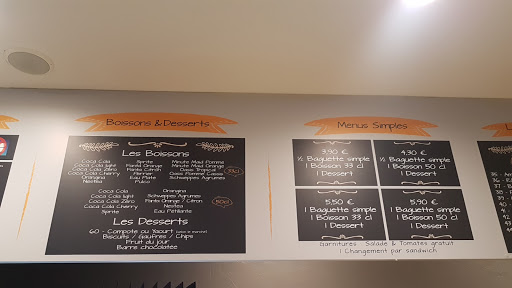 Boissons & Desserts
Les Boissons
Coca Cola
Coca Cola light
Coca Cola Zéro
Coca Cola Cherry
Orangina
Nestea
Sprite
Fanta Orange
Fanta Citron
Perrier
Eau Plate
Pulco
Minute Maid Pomme
Minute Maid Orange
Oasis Tropical
Oasis Pomme Cassis
Schweppes Agrumes
33cl
Coca Cola
Coca Cola light
Coca Cola Zéro
Coca Cola Cherry
Sprite
Orangina
Schweppes Agrumes
Fanta Orange / Citron
Nestea
Eau Pétillante
50cl
Les Desserts
60 - Compote ou Yaourt
Biscuits / Gaufres / Chips
Fruit du jour
Barre chocolatée
Menus Simples
3,90 €
½ Baguette simple
1 Boisson 33 cl
1 Dessert
4,30 €
½ Baguette simple
1 Boisson 50 cl
1 Dessert
5,50 €
1 Baguette simple
1 Boisson 33 cl
1 Dessert
5,90 €
1 Baguette simple
1 Boisson 50 cl
1 Dessert
Garnitures : Salade & Tomates gratuit
1 Changement par sandwich